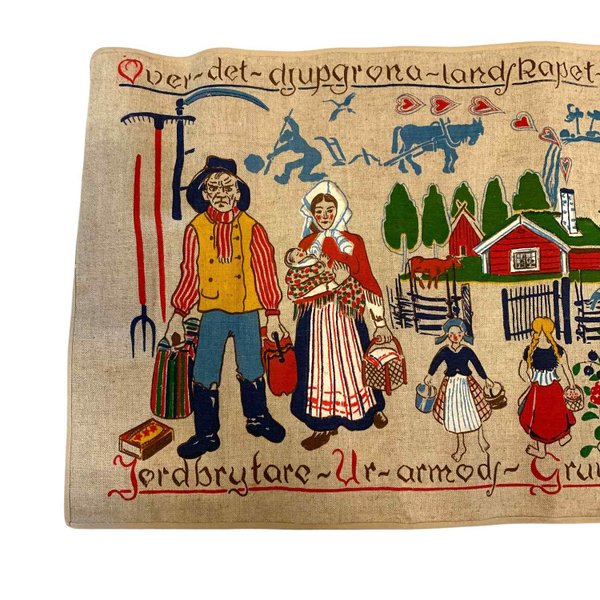 Over-det-djupgrona-landskapet-
Jordbrytare-Ur-armods-Gru